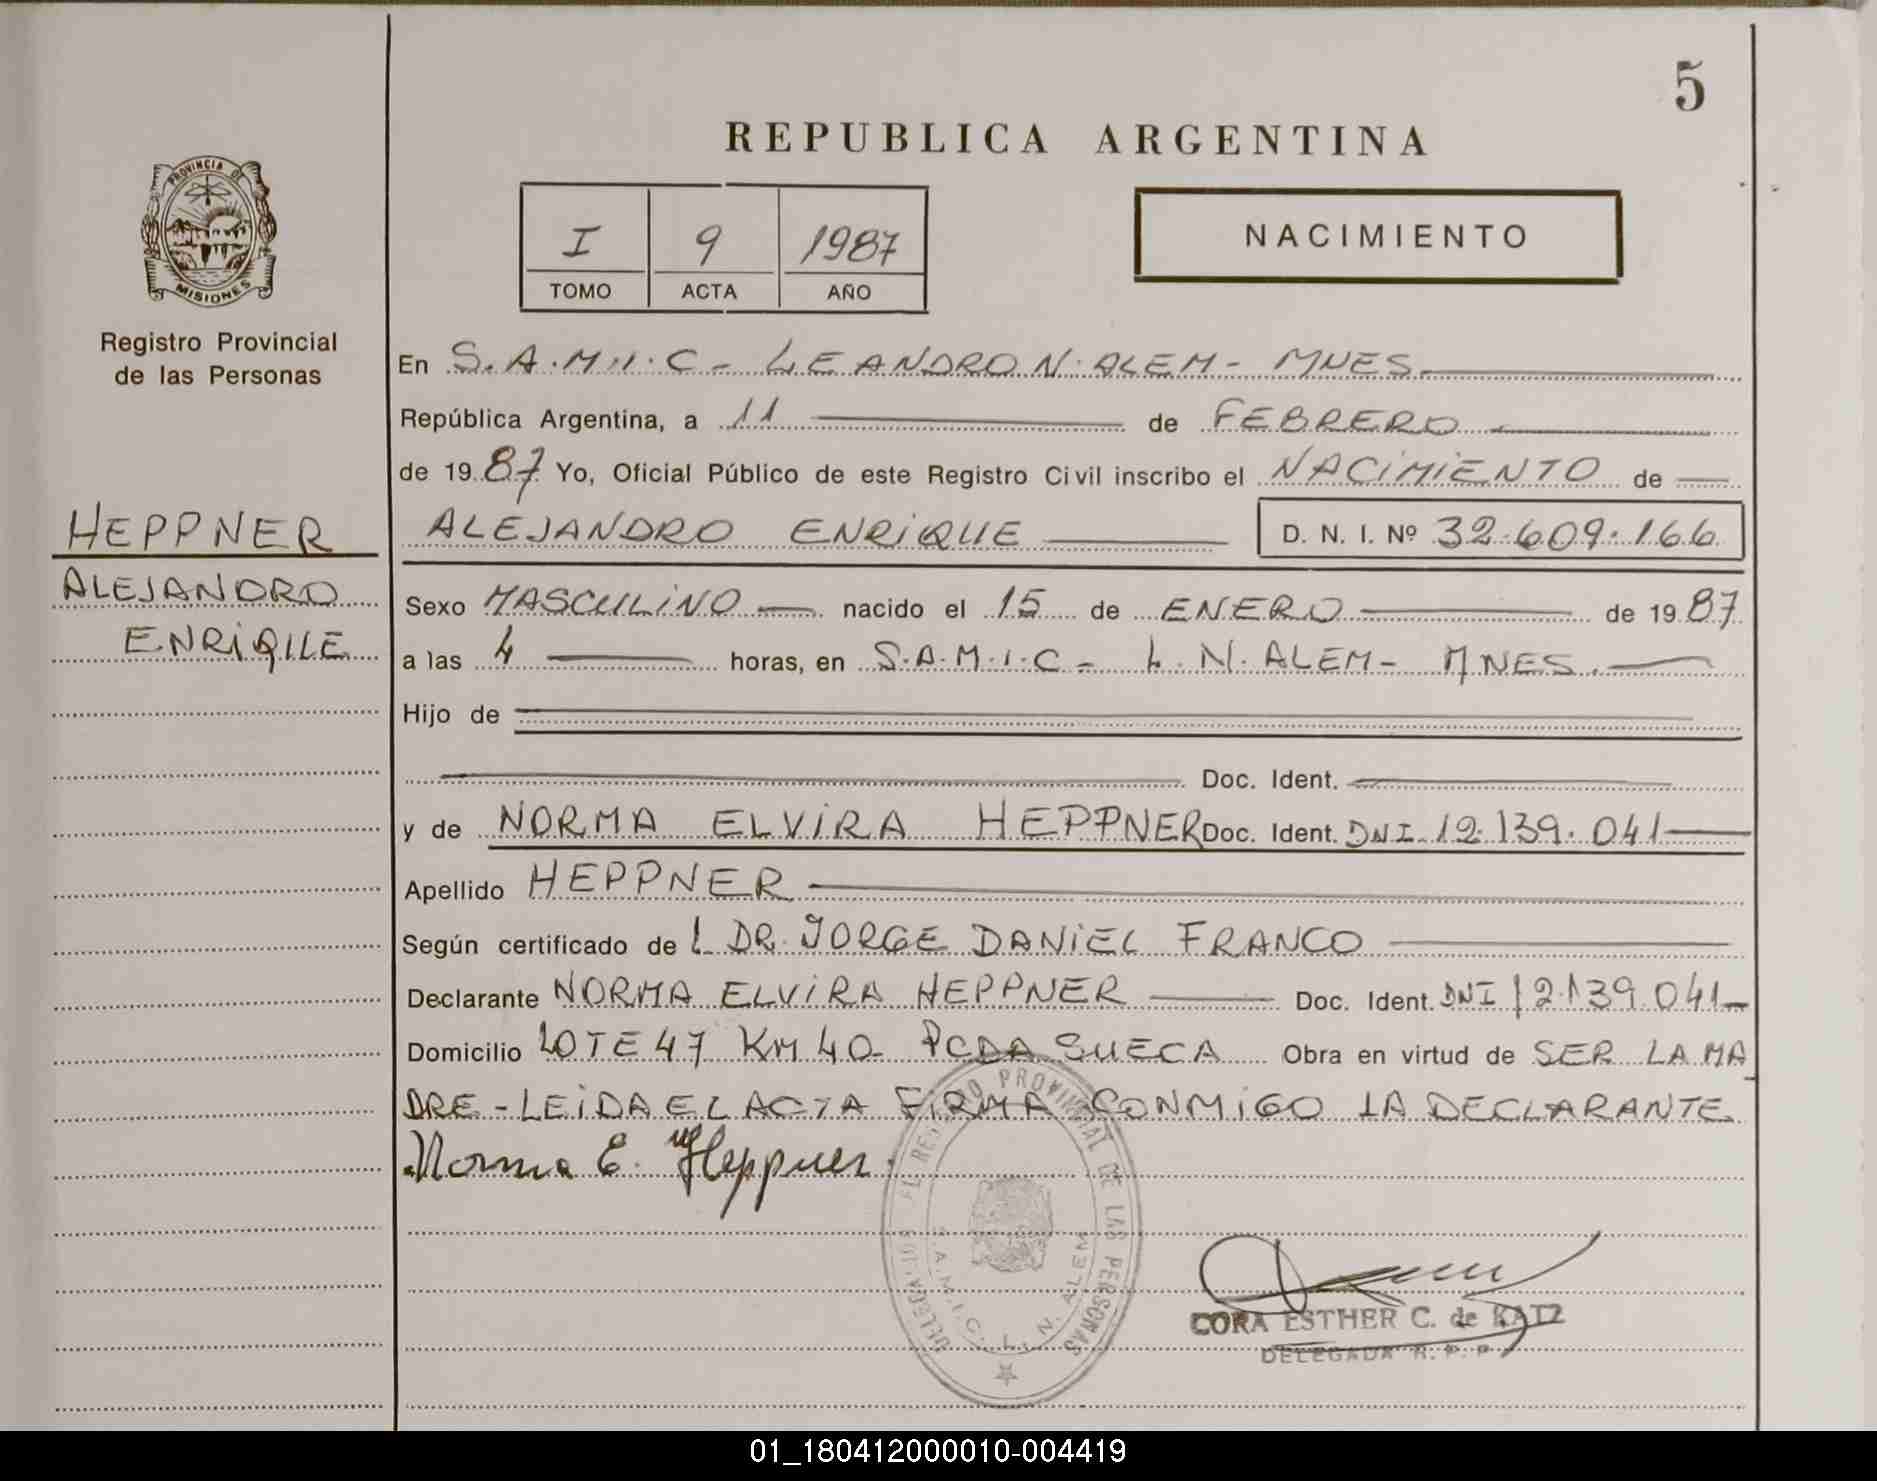 5
REPUBLICA ARGENTINA
PROVINCIA DE
MISIONES
I 9 1987
TOMO ACTA AÑO
NACIMIENTO
Registro Provincial
de las Personas
HEPPNER
ALEJANDRO
ENRIQUE
En S.A.M.I.C - LEANDRO N. ALEM - MNES.
República Argentina, a 11 de FEBRERO
de 19 87 Yo, Oficial Público de este Registro Civil inscribo el NACIMIENTO de
ALEJANDRO ENRIQUE D. N. I. Nº 32.609.166
Sexo MASCULINO nacido el 15 de ENERO de 19 87
a las 4 horas, en S.A.M.I.C - L.N. ALEM - MNES.
Hijo de
Doc. Ident.
y de NORMA ELVIRA HEPPNER Doc. Ident. DNI 12.139.041
Apellido HEPPNER
Según certificado de L DR. JORGE DANIEL FRANCO
Declarante NORMA ELVIRA HEPPNER Doc. Ident. DNI 12.139.041
Domicilio LOTE 47 KM 40 PCDA SUECA Obra en virtud de SER LA MA
DRE - LEIDA EL ACTA FIRMA CONMIGO LA DECLARANTE
Norma E. Heppner
REGISTRO PROVINCIAL DE LAS PERSONAS
S.A.M.I.C. L. N. ALEM
CORA ESTHER C. de KATZ
DELEGADA R. P. P.
01_180412000010-004419